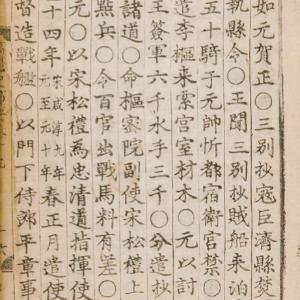 如元賀正○三別抄寇巨濟縣焚
執縣令○王聞三別抄賊船來泊
五十騎于元帥忻都宿衛宮禁○
遣李樞來索宮室材木○元以討
王簽軍六千水手三千○分遣抄
諸道○命樞密院副使宋松禮上
點兵○令百官出戰馬料有差○
元○以宋松禮為忠清道指揮使
十四年宋咸淳九年元至元十年春正月遣使
督造戰艦○以門下侍郎平章事